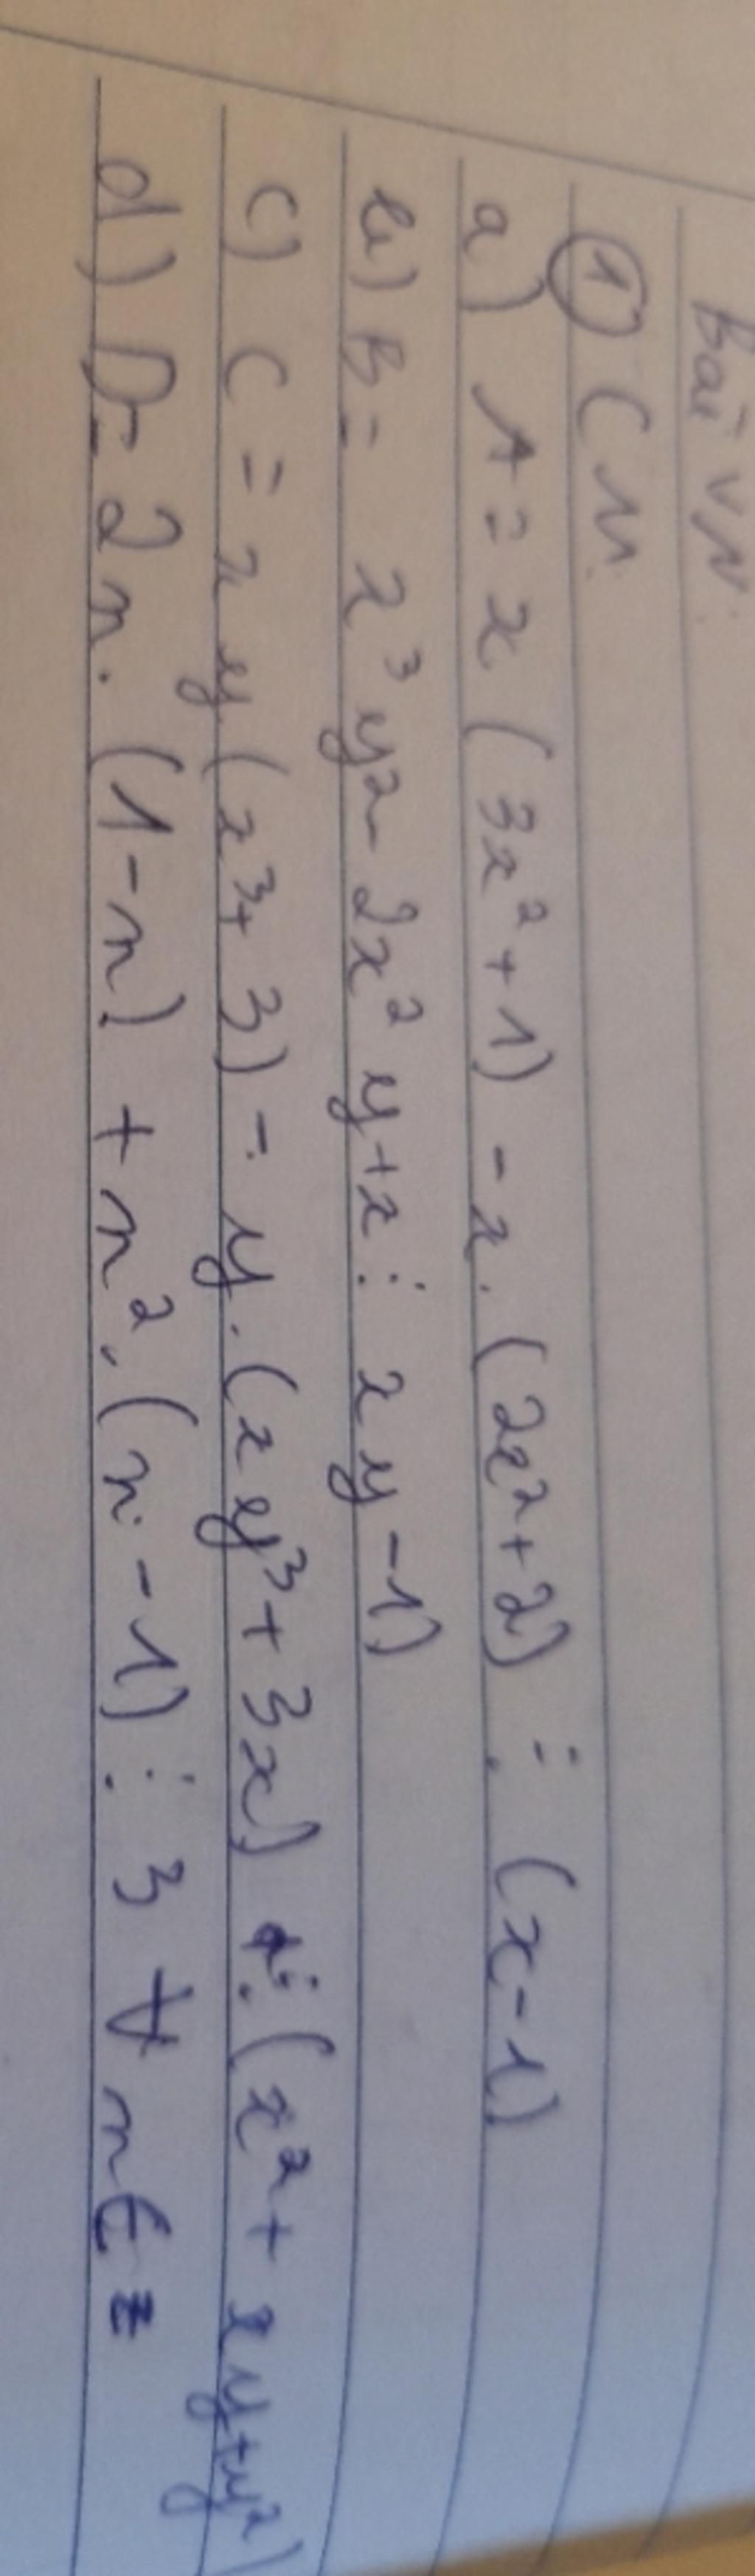 Bài VN:
① CM
a) A = x (3x² + 1) - x. (2x² + 2) ⋮ (x - 1)
b) B = x³y² - 2x²y + x ⋮ xy - 1)
c) C = xy (x³ + 3) - y. (xy³ + 3x) ⋮ (x² + xy + y²)
d) D = 2n. (1 - n) + n². (n - 1) ⋮ 3 ∀ n ∈ Z